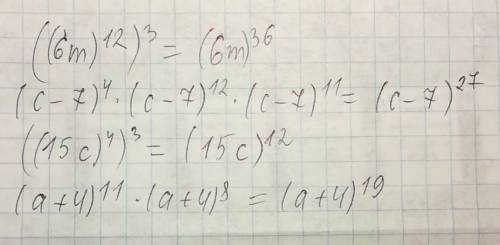 ((6m)¹²)³ = (6m)³⁶
(c-7)⁴·(c-7)¹²·(c-7)¹¹= (c-7)²⁷
((15c)⁴)³ = (15c)¹²
(a+4)¹¹·(a+4)⁸ = (a+4)¹⁹